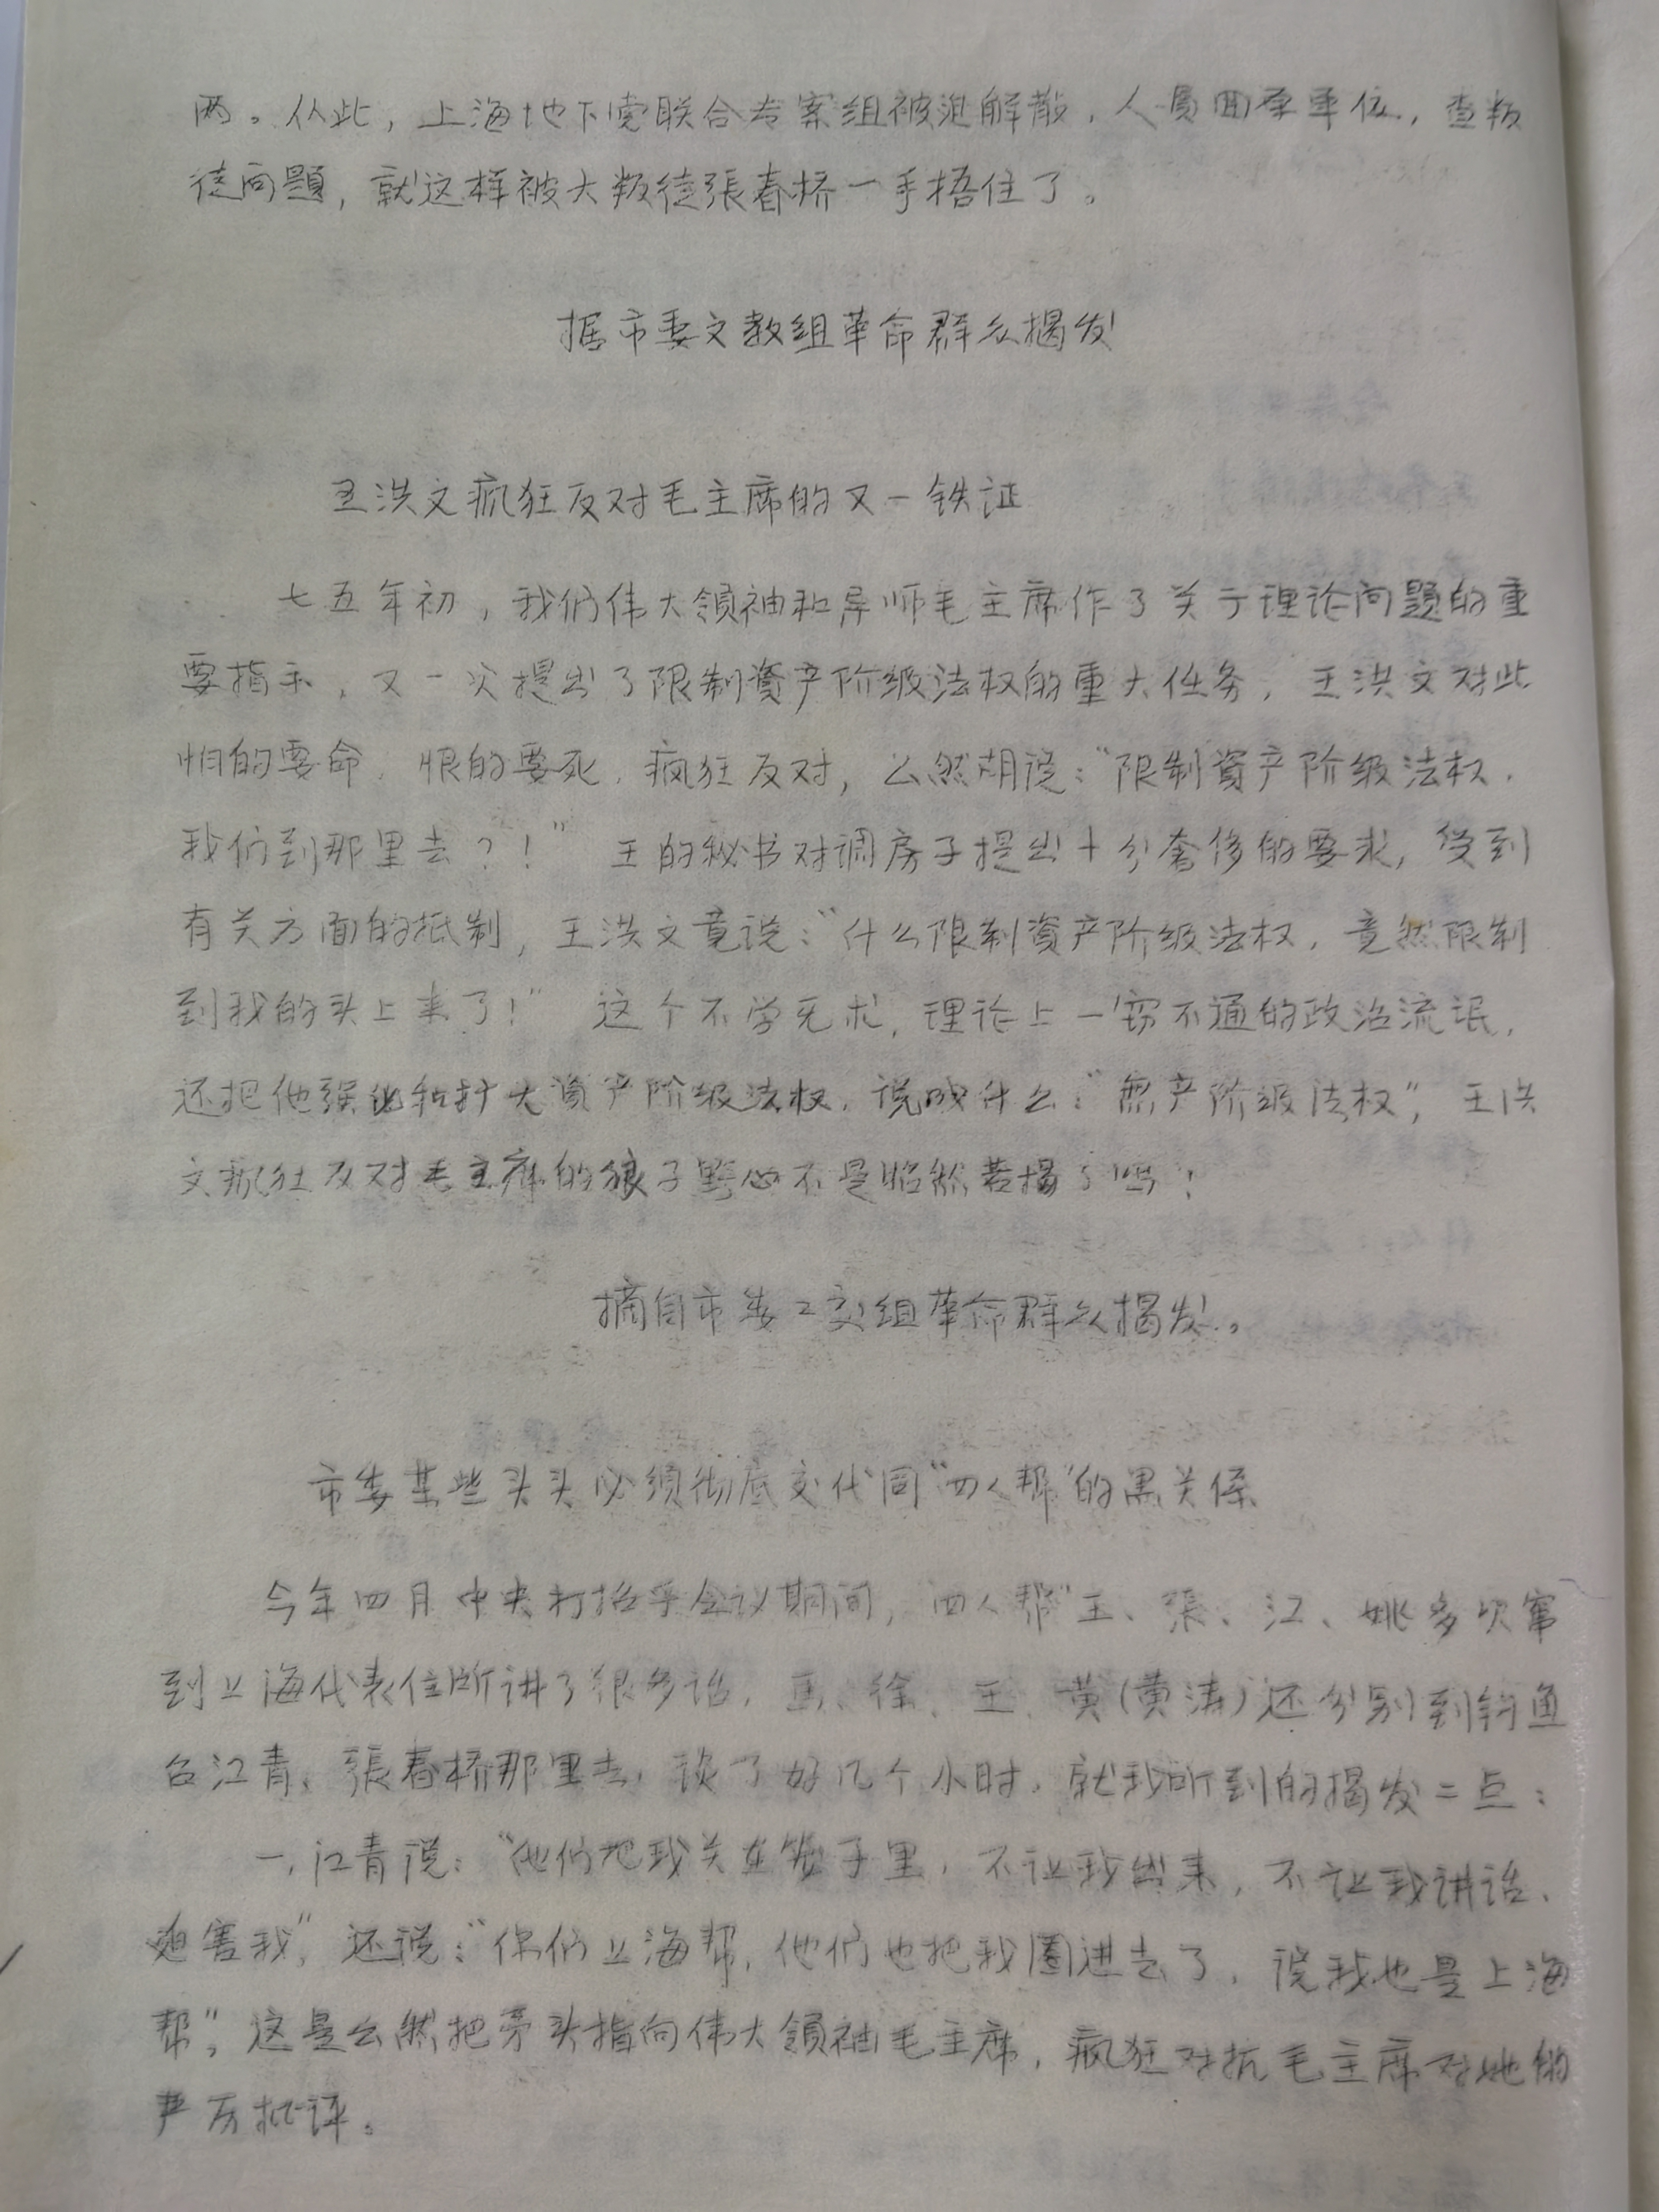 两。从此，上海地下党联合专案组被迫解散，人员回原单位，查叛
徒问题，就这样被大叛徒張春桥一手捂住了。
据市委文教组革命群众揭发
王洪文疯狂反对毛主席的又一铁证
七五年初，我们伟大领袖和导师毛主席作了关于理论问题的重
要指示，又一次提出了限制資产阶级法权的重大任务，王洪文对此
怕的要命，恨的要死，疯狂反对，公然胡说：“限制資产阶级法权，
我们到那里去？！” 王的秘书对调房子提出十分奢侈的要求，受到
有关方面的抵制，王洪文竟说：“什么限制資产阶级法权，竟然限制
到我的头上来了！” 这个不学无术，理论上一窍不通的政治流氓，
还把他强化和扩大資产阶级法权，说成什么：“無产阶级法权”，王洪
文疯狂反对毛主席的狼子野心不是昭然若揭了吗？
摘自市委工交组革命群众揭发。
市委某些头头必须彻底交代同“四人帮”的黑关係
今年四月中央打招乎会议期间，“四人帮”王、張、江、姚多次窜
到上海代表住所讲了很多话，馬、徐、王、黄（黄涛）还分别到钓鱼
台江青、張春桥那里去，谈了好几个小时，就我听到的揭发二点：
一，江青说：“他们把我关在笼子里，不让我出来，不让我讲话、
迫害我”，还说：“你们上海帮，他们也把我圈进去了，说我也是上海
帮”，这是公然把矛头指向伟大领袖毛主席，疯狂对抗毛主席对她的
严厉批评。